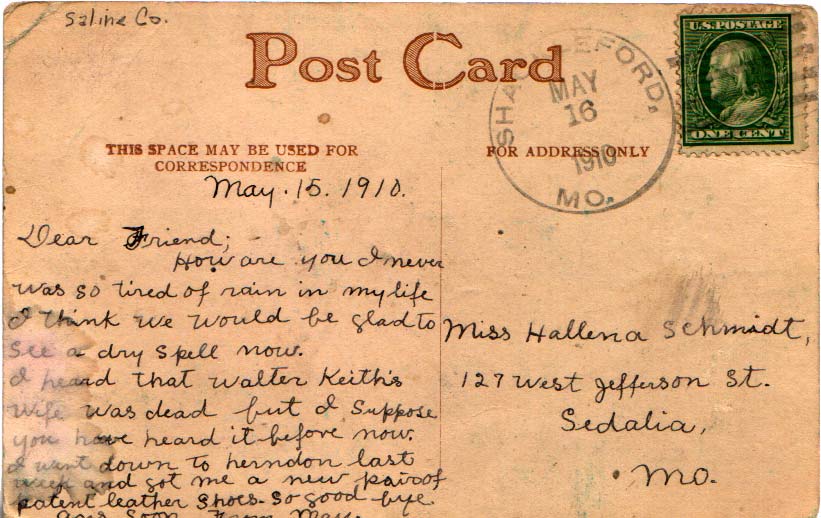 Saline Co.
Post Card
SHACKLEFORD,
MAY
16
1910
MO.
U.S. POSTAGE
ONE CENT
THIS SPACE MAY BE USED FOR
CORRESPONDENCE
FOR ADDRESS ONLY
May. 15. 1910.
Dear Friend;
How are you I never
was so tired of rain in my life
I think we would be glad to
see a dry spell now.
I heard that Walter Keith's
Wife was dead but I Suppose
you have heard it before now.
I went down to herndon last
week and got me a new pair of
patent leather shoes. So good bye
ans soon From May.
Miss Hallena Schmidt,
127 West Jefferson St.
Sedalia,
Mo.